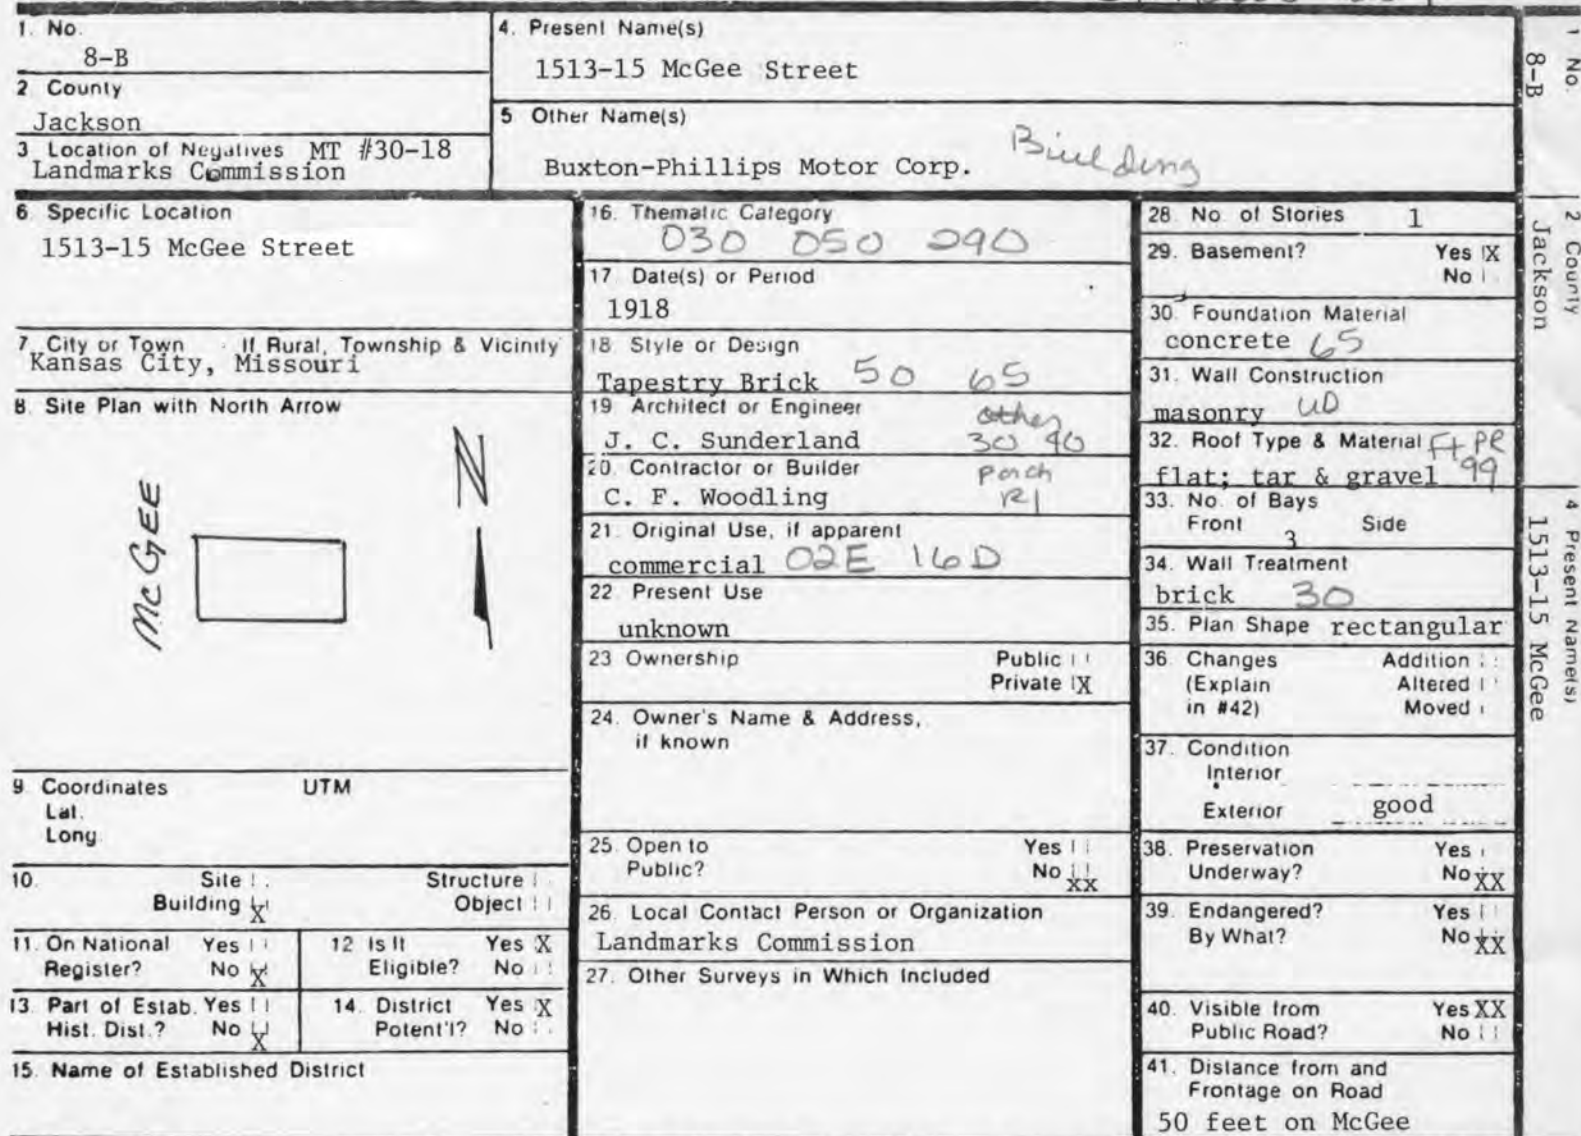 1. No.
8-B
2. County
Jackson
3. Location of Negatives MT #30-18
Landmarks Commission
4. Present Name(s)
1513-15 McGee Street
5. Other Name(s)
Buxton-Phillips Motor Corp. Building
6. Specific Location
1513-15 McGee Street
7. City or Town If Rural, Township & Vicinity
Kansas City, Missouri
8. Site Plan with North Arrow
N
McGEE
9. Coordinates UTM
Lat.
Long.
10. Site Structure
Building X Object
11. On National Yes
Register? No X
12. Is It Yes X
Eligible? No
13. Part of Estab. Yes
Hist. Dist.? No X
14. District Yes X
Potent'l? No
15. Name of Established District
16. Thematic Category
030 050 290
17. Date(s) or Period
1918
18. Style or Design
Tapestry Brick 50 65
19. Architect or Engineer other
J. C. Sunderland 30 40
20. Contractor or Builder porch
C. F. Woodling R1
21. Original Use, if apparent
commercial 02E 16D
22. Present Use
unknown
23. Ownership Public
Private X
24. Owner's Name & Address,
if known
25. Open to Yes
Public? No XX
26. Local Contact Person or Organization
Landmarks Commission
27. Other Surveys in Which Included
28. No. of Stories 1
29. Basement? Yes X
No
30. Foundation Material
concrete 65
31. Wall Construction
masonry UD
32. Roof Type & Material Ft PR
flat; tar & gravel 99
33. No. of Bays
Front 3 Side
34. Wall Treatment
brick 30
35. Plan Shape rectangular
36. Changes Addition
(Explain Altered
in #42) Moved
37. Condition
Interior
Exterior good
38. Preservation Yes
Underway? No XX
39. Endangered? Yes
By What? No XX
40. Visible from Yes XX
Public Road? No
41. Distance from and
Frontage on Road
50 feet on McGee
1 No.
8-B
2 County
Jackson
4 Present Name(s)
1513-15 McGee